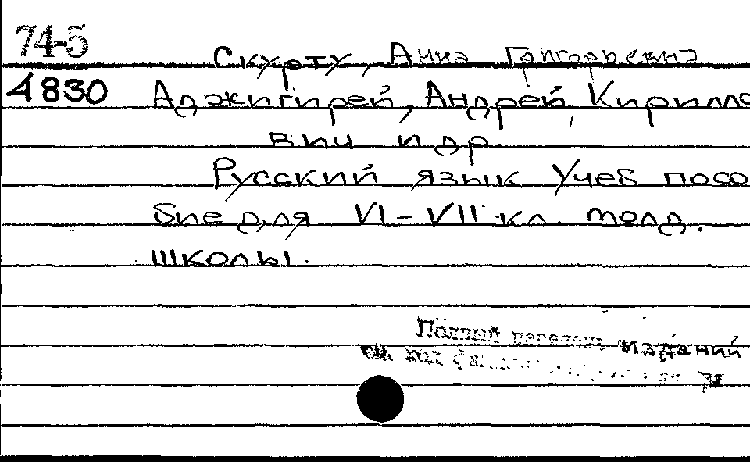 74-5
4830
Скурту, Анна Григорьевна
Аджигирей, Андрей Кирилло
вич и др.
Русский язык Учеб посо
бие для VI-VII кл. молд.
школы.
Полный перечень изданий
см. на